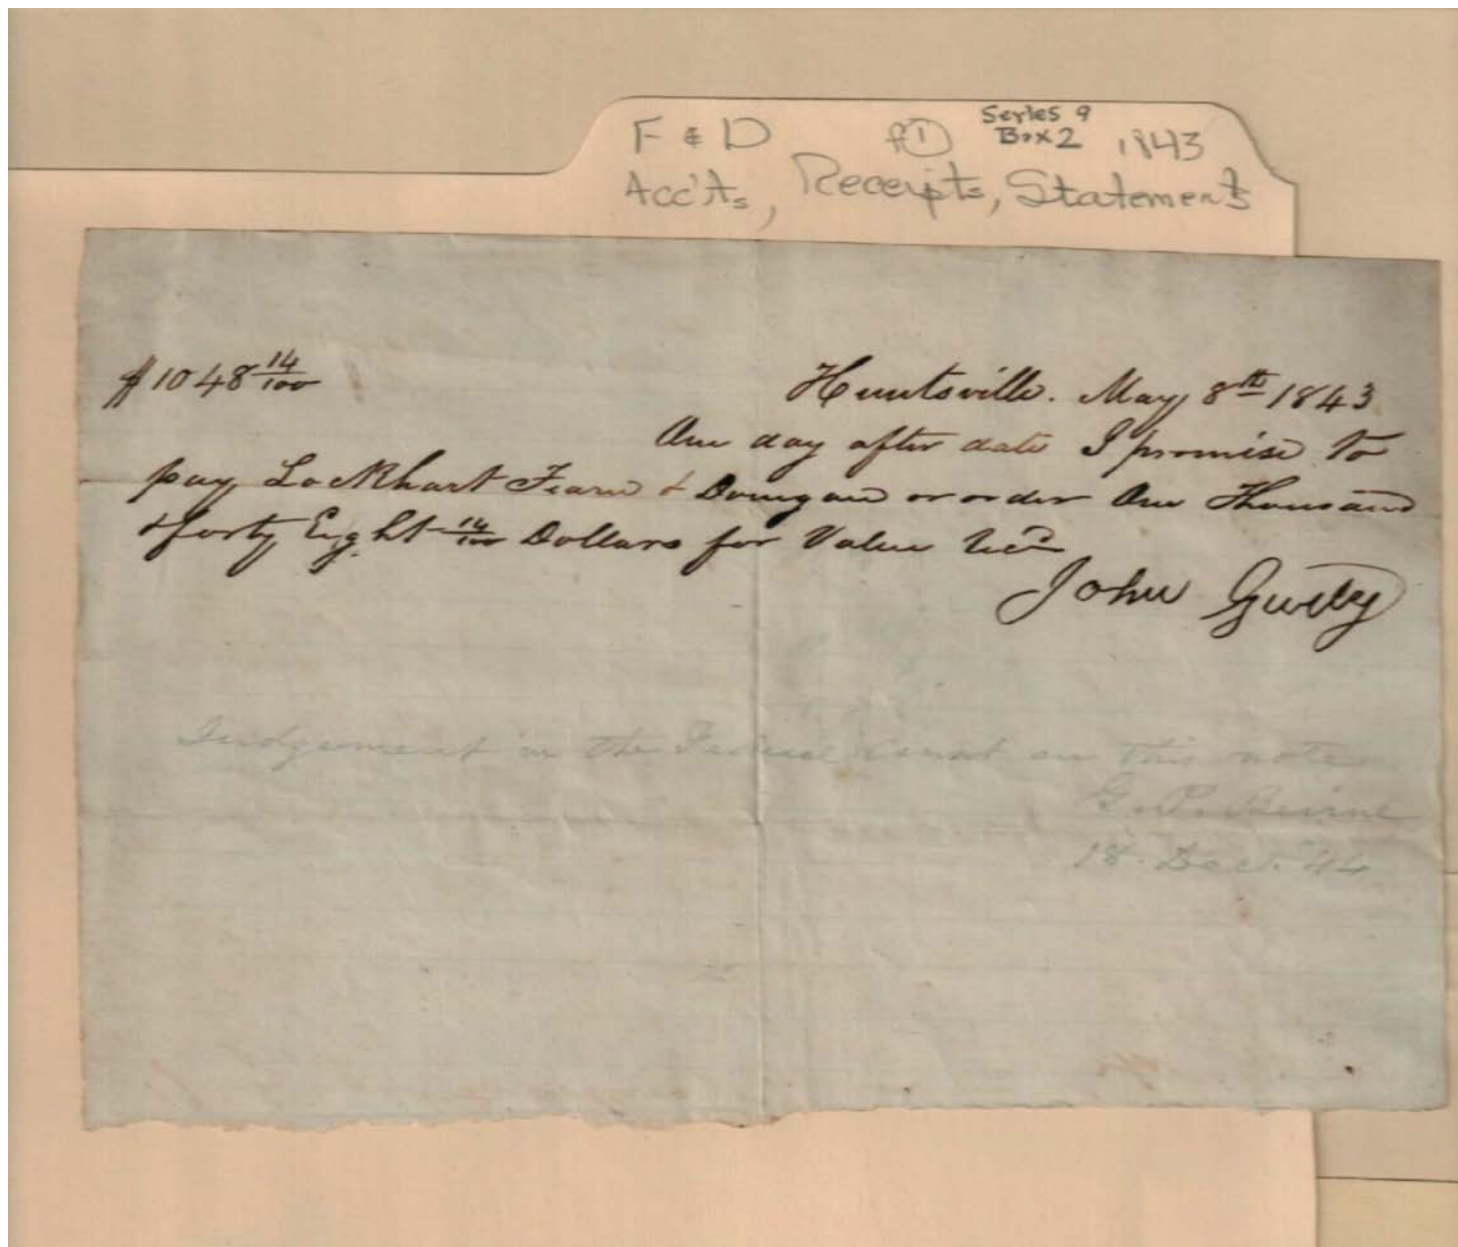 F & D f① Series 9 Box 2 1843
Acc'ts, Receipts, Statements
$1048 14/100 Huntsville. May 8th 1843
One day after date I promise to
pay Lockhart Fearn & Donegan or order One Thousand
& forty Eight 14/100 Dollars for Value Rec'd
John
Judgement in the Federal Court on this note
G. P. Beirne
18. Dec. '44